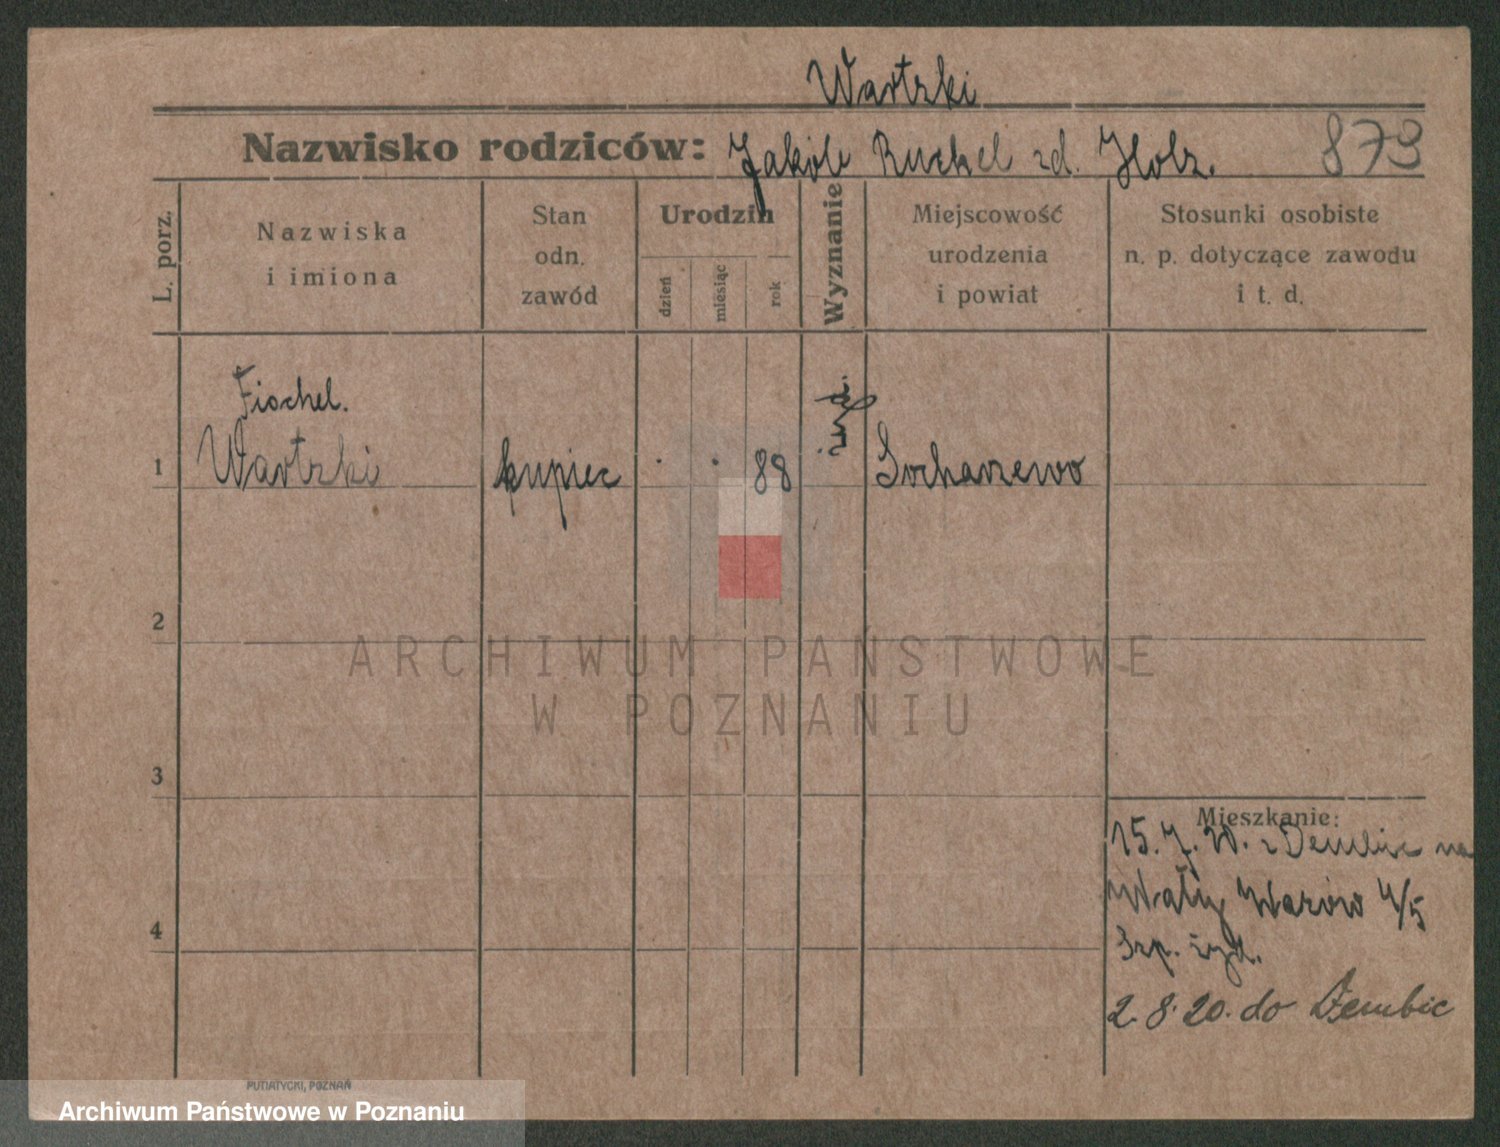 Wartzki
Nazwisko rodziców: Jakób Ruchel zd. Holz.
873
L. porz.
Nazwiska
i imiona
Stan
odn.
zawód
Urodzin
dzień
miesiąc
rok
Wyznanie
Miejscowość
urodzenia
i powiat
Stosunki osobiste
n. p. dotyczące zawodu
i t. d.
Fischel.
1 Wartzki kupiec . . 88 żyd. Sochaczewo
2
ARCHIWUM PAŃSTWOWE
W POZNANIU
3
Mieszkanie:
15. 7. 20. z Dembic na
Wały Wazów 4/5
Szp. żyd.
4
2. 8. 20. do Dembic
PUTIATYCKI, POZNAŃ
Archiwum Państwowe w Poznaniu